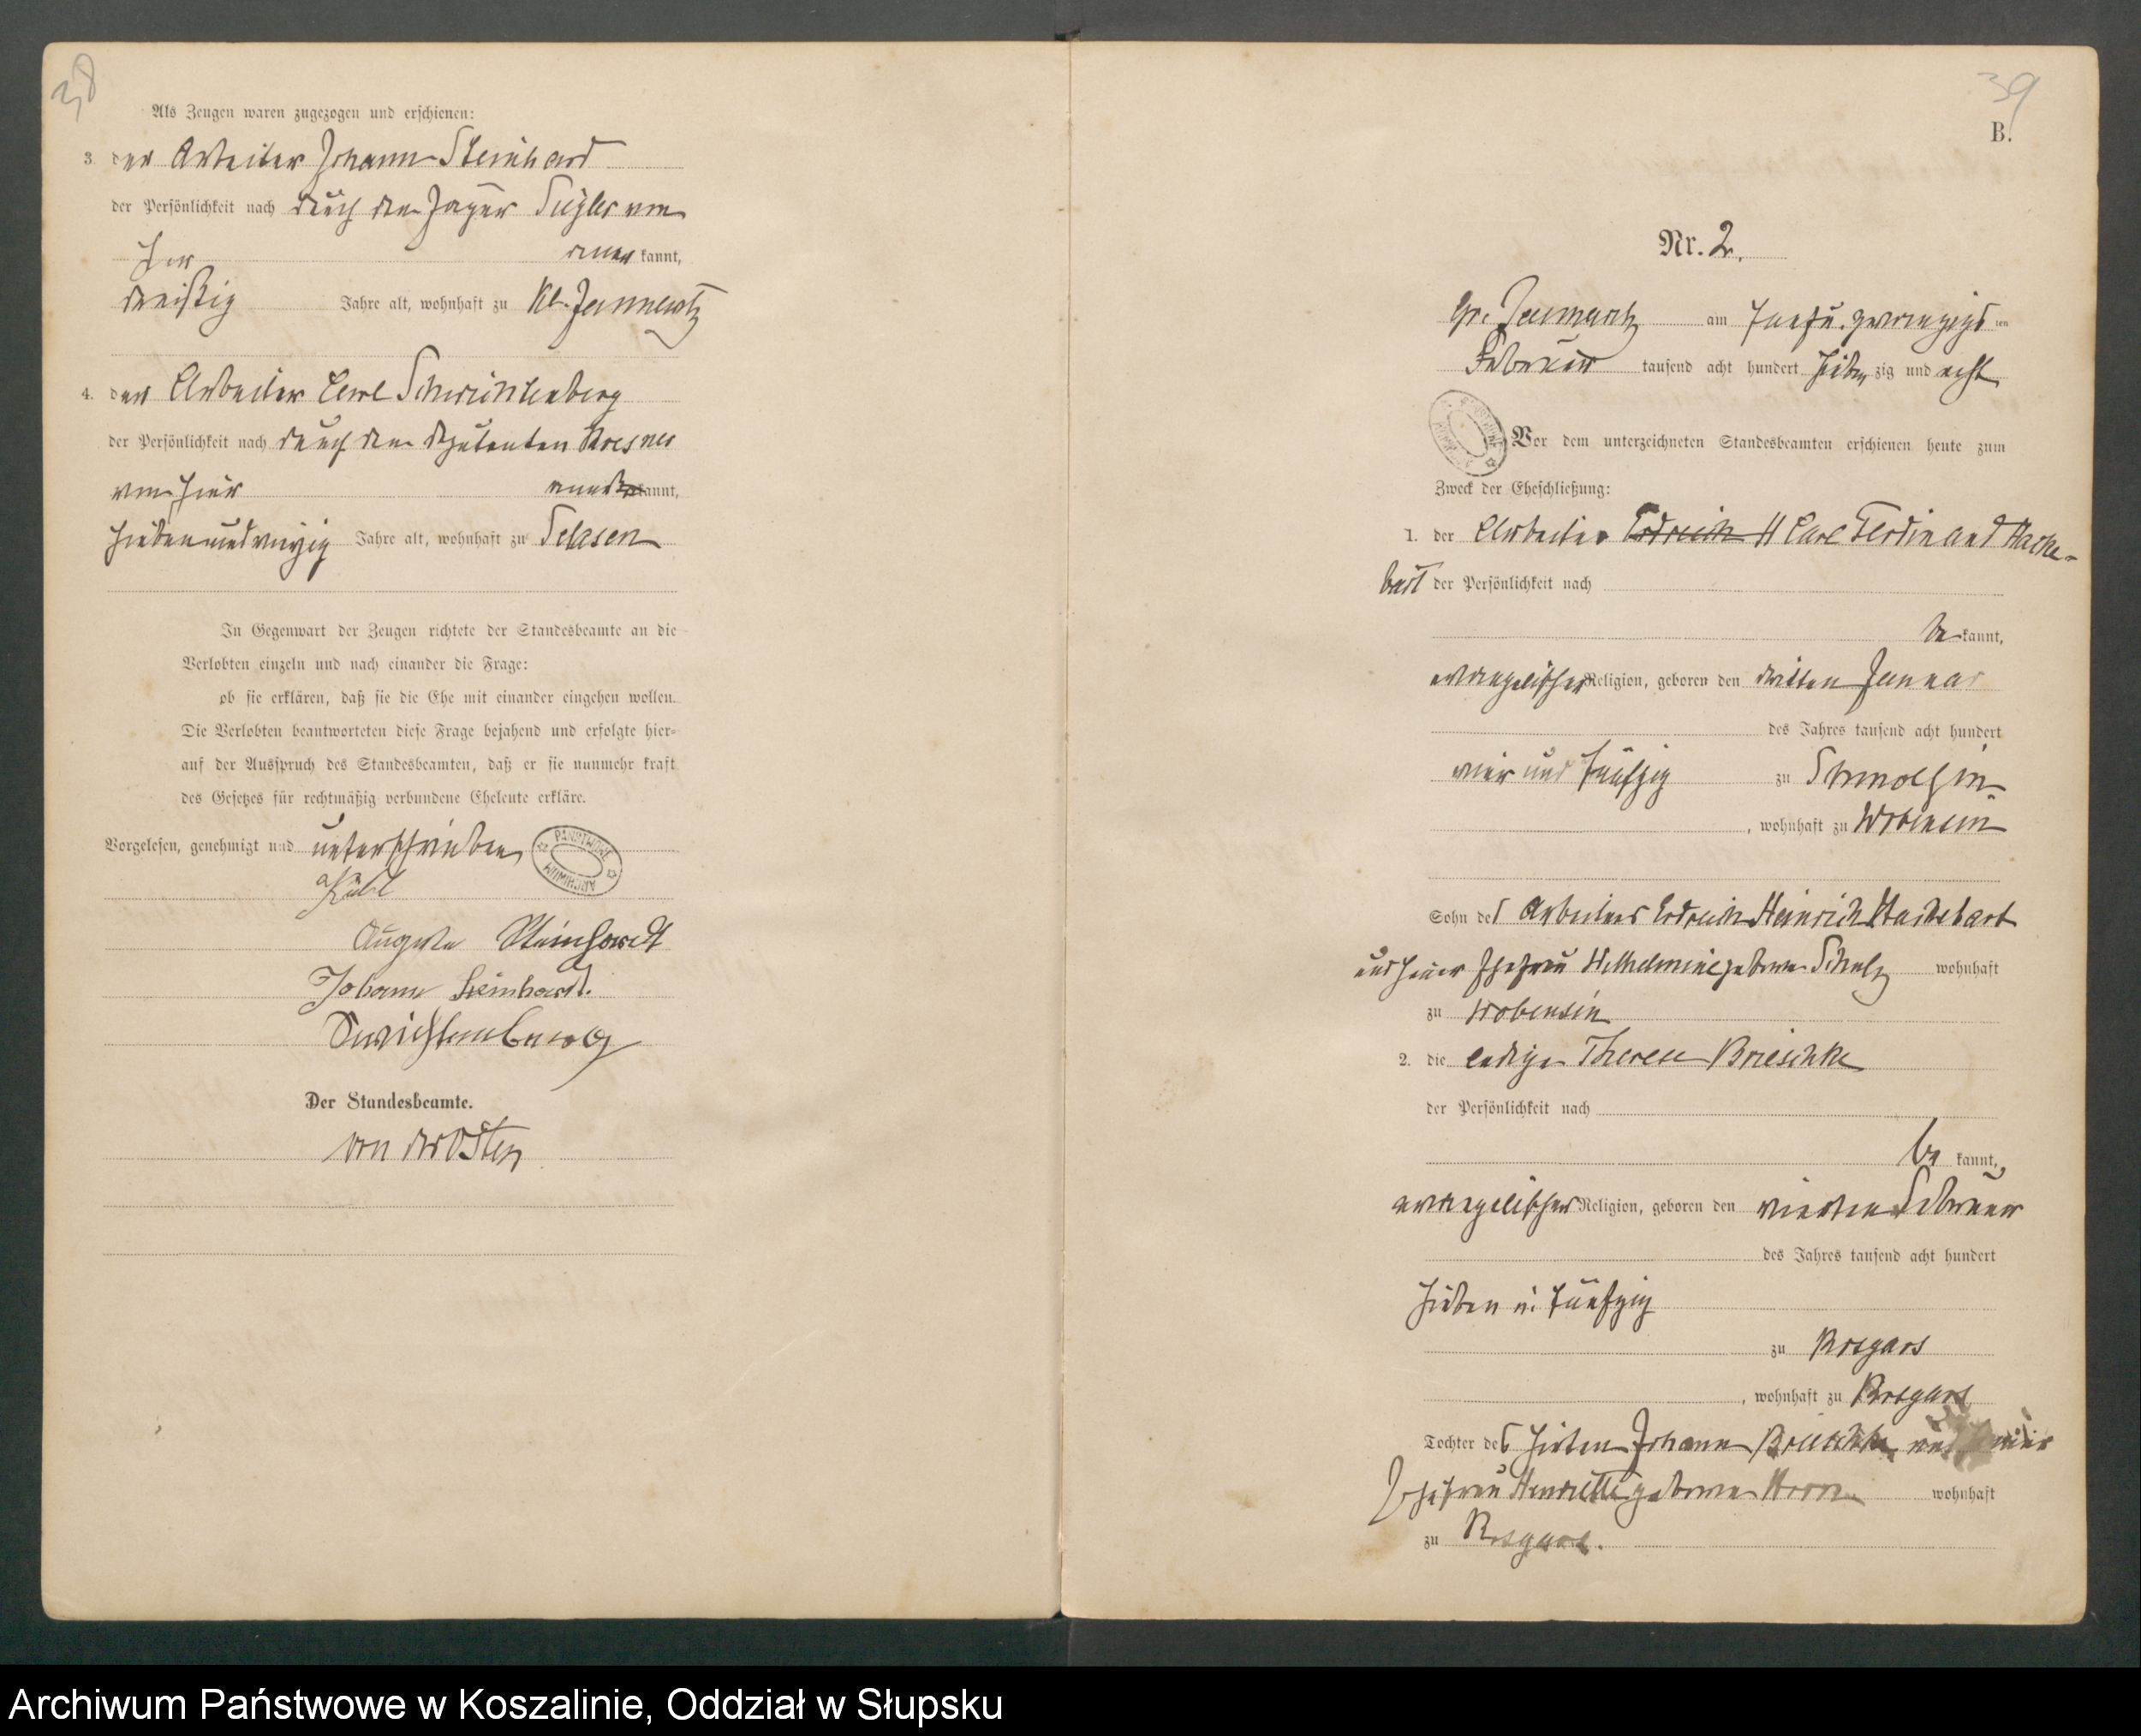 38
Als Zeugen waren zugezogen und erschienen:
3. der Arbeiter Johann Steinhard
der Persönlichkeit nach durch den Jäger Siegler von
hier anerkannt,
dreißig Jahre alt, wohnhaft zu Kl. Jannewitz
4. der Arbeiter Carl Schwichtenberg
der Persönlichkeit nach durch den Deputanten
von hier anerkannt,
siebenundvierzig Jahre alt, wohnhaft zu Selesen
In Gegenwart der Zeugen richtete der Standesbeamte an die
Verlobten einzeln und nach einander die Frage:
ob sie erklären, daß sie die Ehe mit einander eingehen wollen.
Die Verlobten beantworteten diese Frage bejahend und erfolgte hier-
auf der Ausspruch des Standesbeamten, daß er sie nunmehr kraft
des Gesetzes für rechtmäßig verbundene Eheleute erkläre.
Vorgelesen, genehmigt und unterschrieben
Auguste Steinhardt
Johann Steinhardt.
Schwichtenberg
Der Standesbeamte.
von der Osten
39
B.
Nr. 2.
Gr. Jannewitz am fünf u. zwanzigsten
Februar tausend acht hundert siebenzig und acht
Vor dem unterzeichneten Standesbeamten erschienen heute zum
Zweck der Eheschließung:
1. der Arbeiter Erdreich H Carl Ferdinand Hacke-
bart der Persönlichkeit nach
bekannt,
evangelischer Religion, geboren den dritten Januar
des Jahres tausend acht hundert
vier und fünfzig zu Schmolsin
, wohnhaft zu Wobensin
Sohn des Arbeiters Erdreich Heinrich Hackebart
und seiner Ehefrau Wilhelmine geborene Schulz wohnhaft
zu Wobensin
2. die ledige Therese Brieschke
der Persönlichkeit nach
bekannt,
evangelischer Religion, geboren den vierten Februar
des Jahres tausend acht hundert
sieben u. fünfzig
zu Rosgars
, wohnhaft zu Rosgars
Tochter des Hirten Johann Brieschke und seiner
Ehefrau Henriette geborene Horn wohnhaft
zu Rosgars.
Archiwum Państwowe w Koszalinie, Oddział w Słupsku